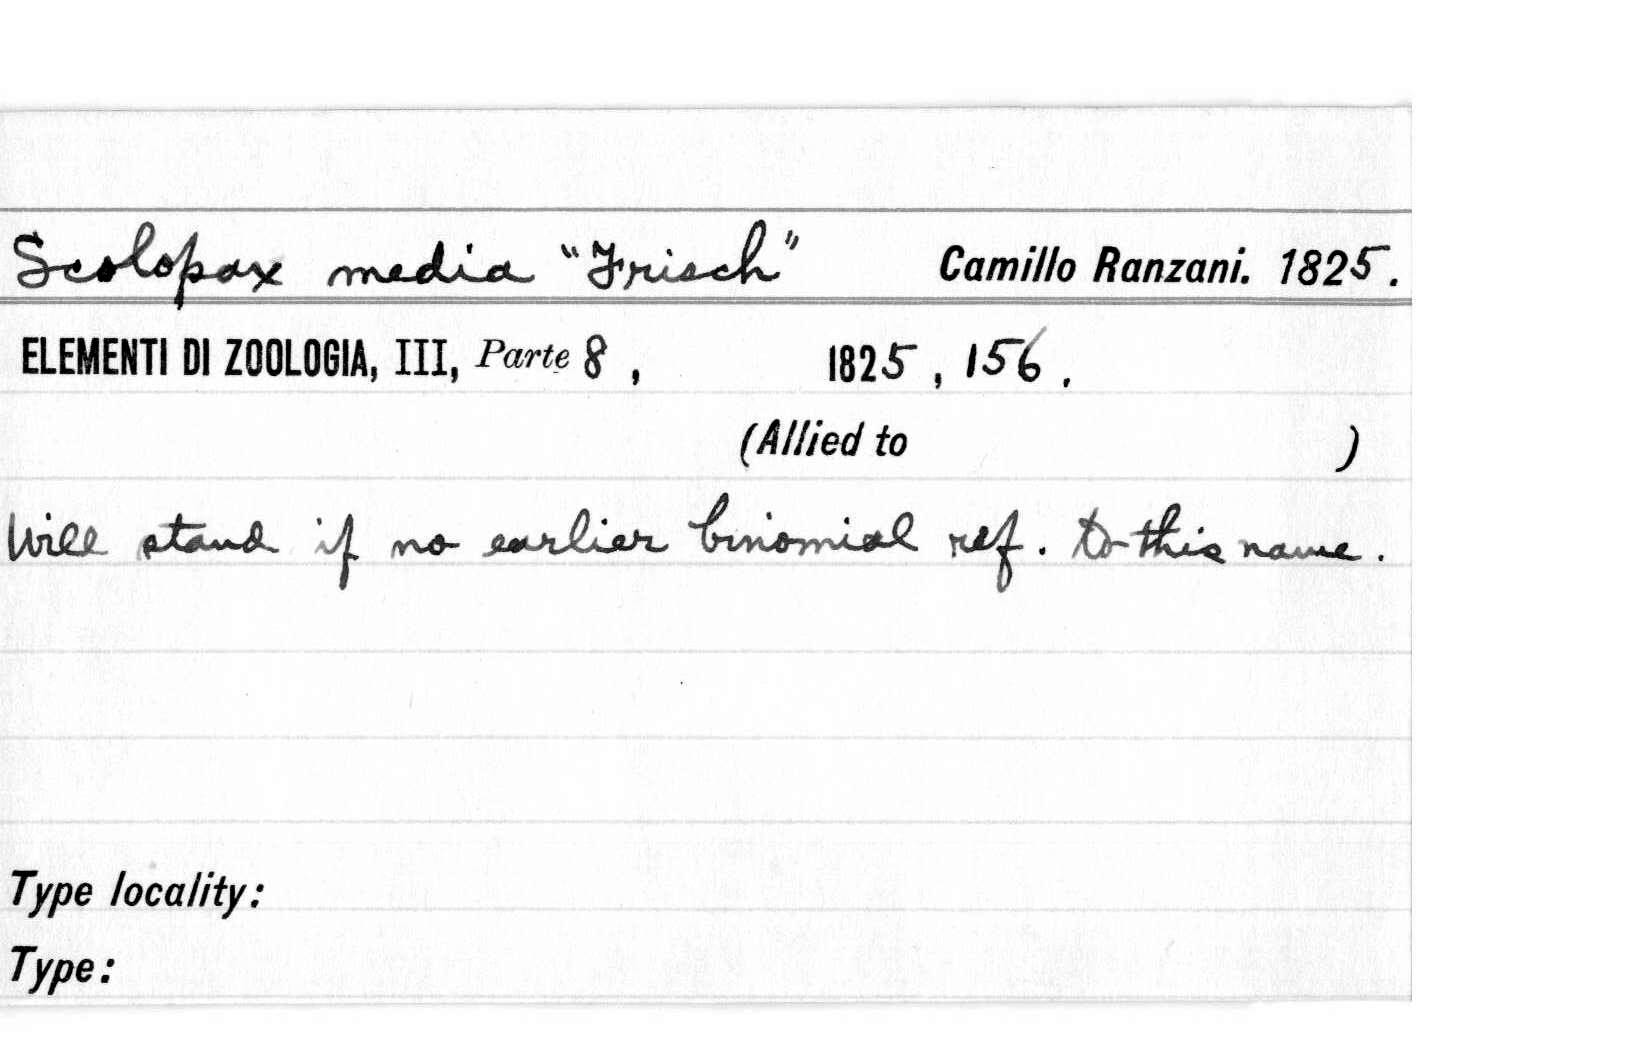 Scolopax media "Frisch" Camillo Ranzani. 1825.
ELEMENTI DI ZOOLOGIA, III, Parte 8, 1825, 156.
(Allied to )
Will stand if no earlier binomial ref. to this name.
Type locality:
Type: